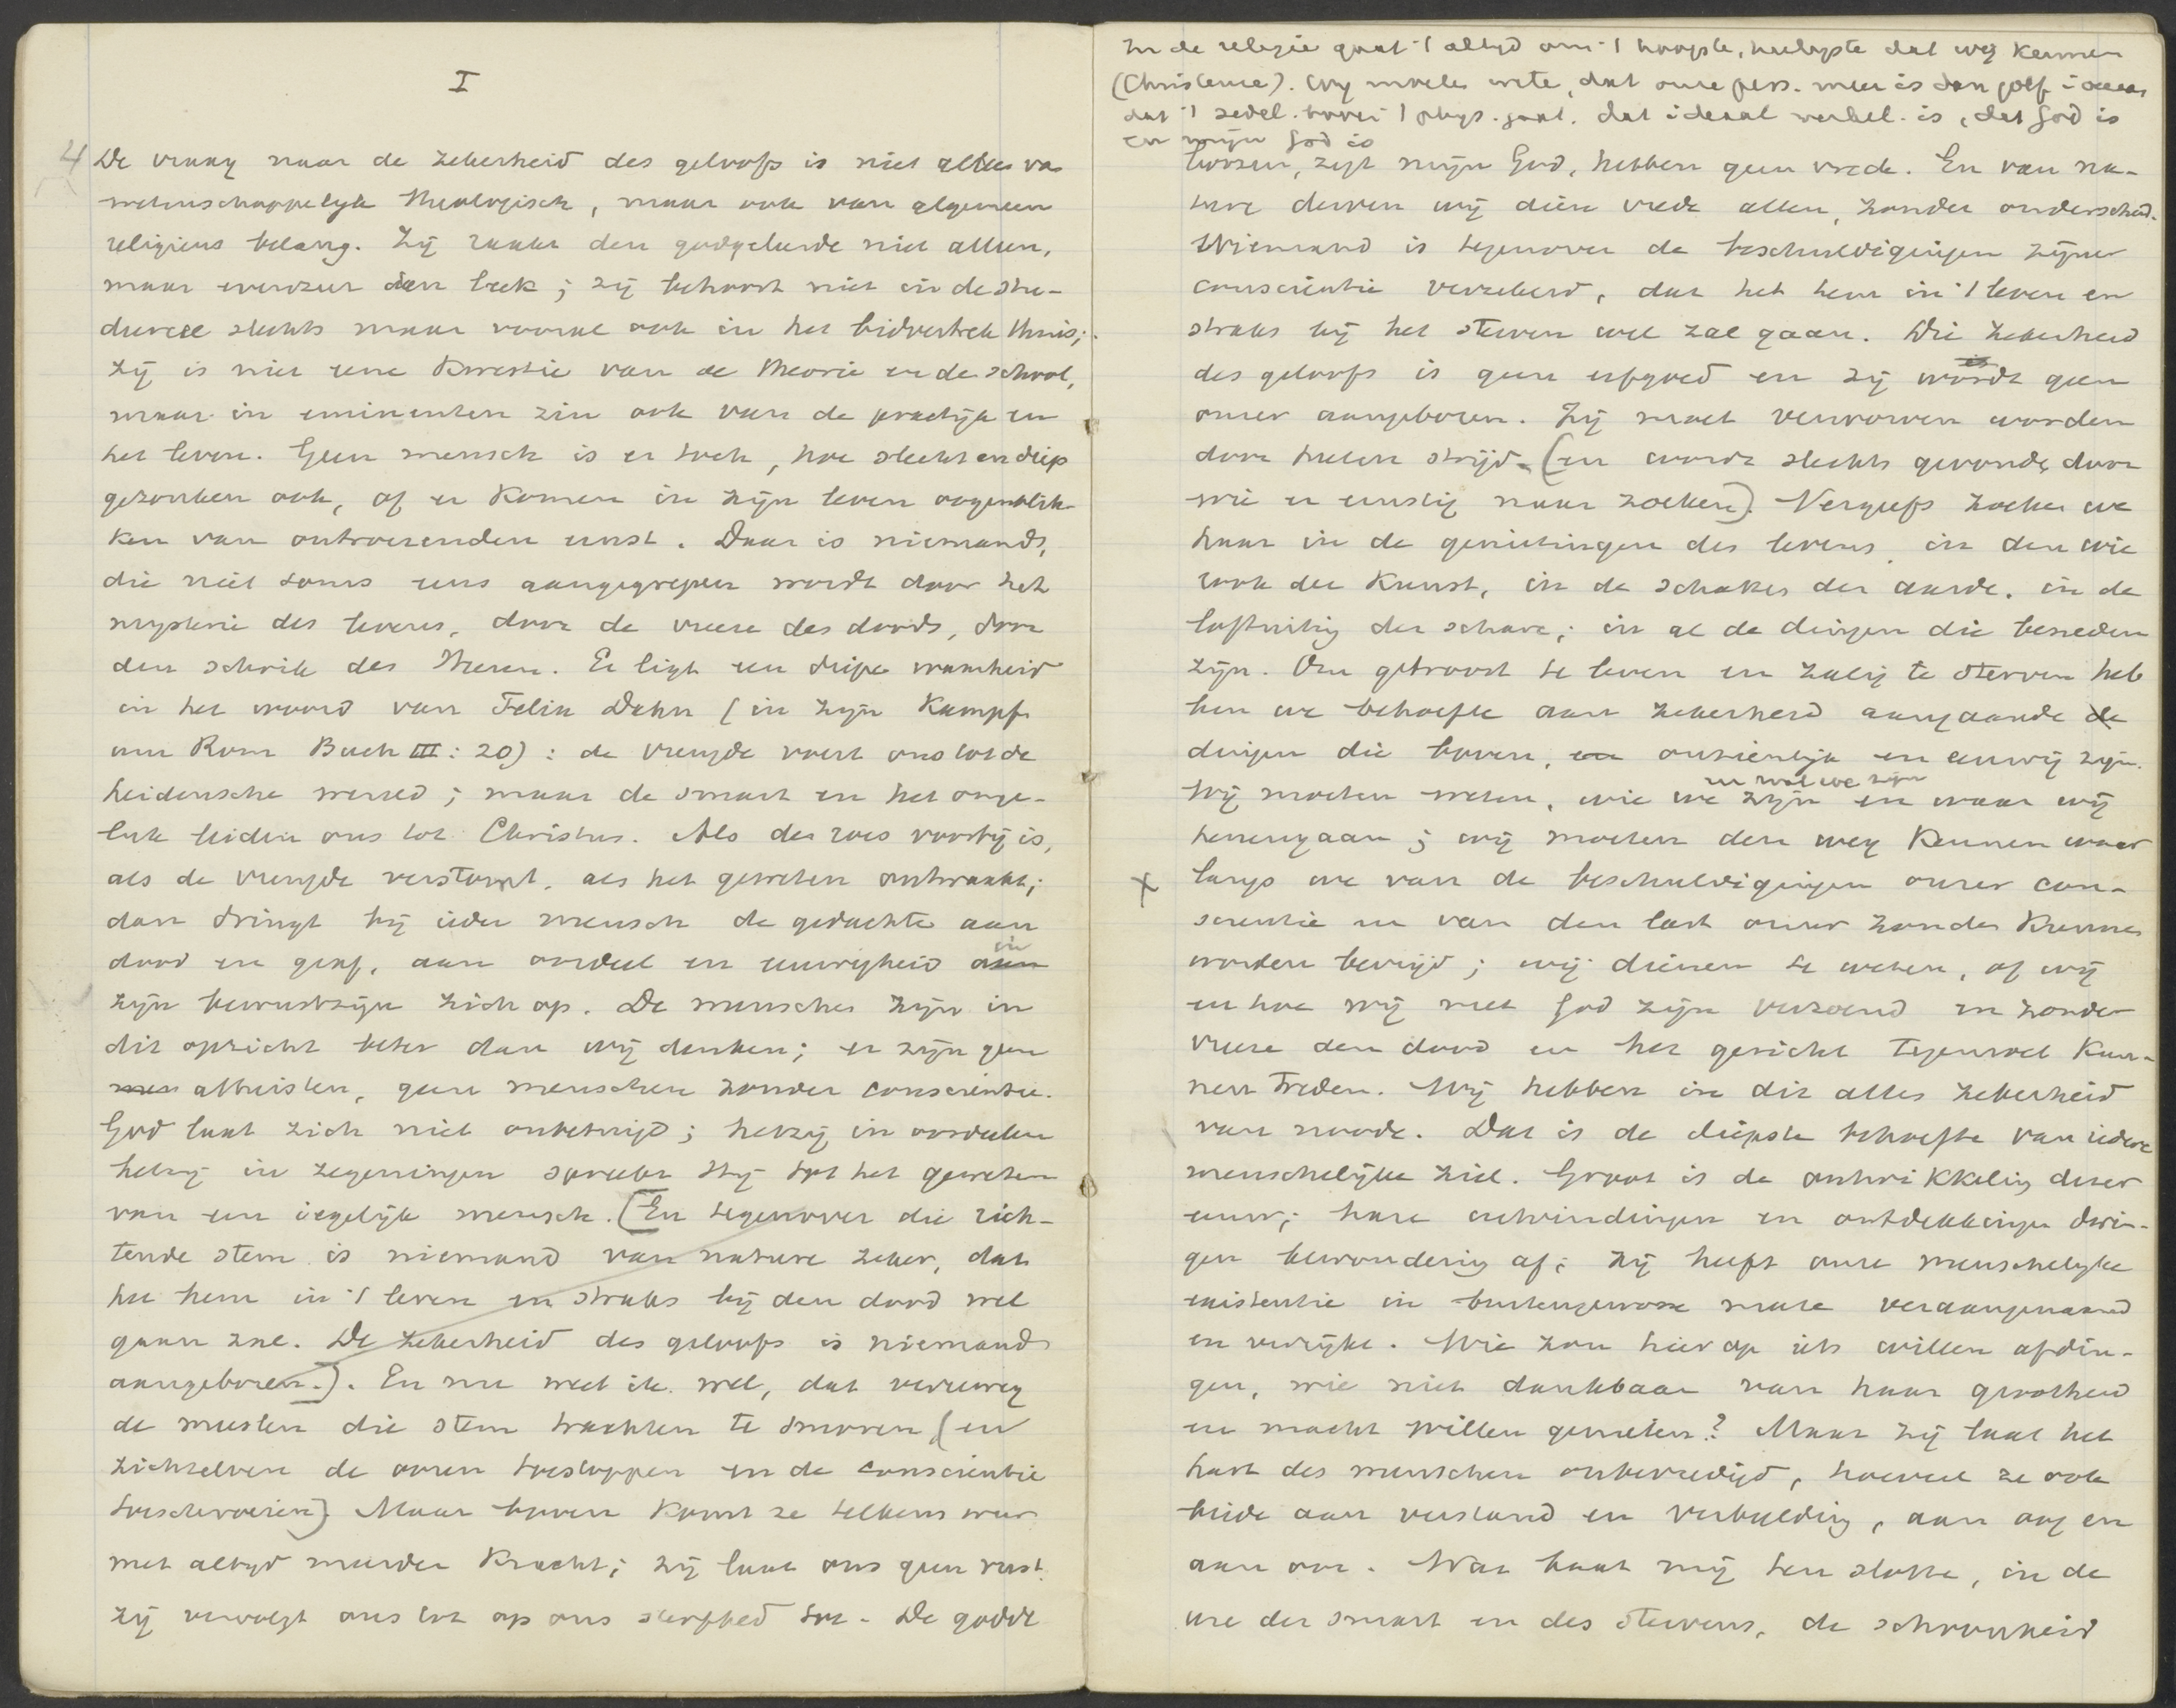 I
4 De vraag naar de zekerheid des geloofs is niet alleen van
wetenschappelijk theologisch, maar ook van algemeen
religieus belang. Zij raakt den godgeleerde niet alleen,
maar evenzeer den leek; zij behoort niet in de stu-
deercel slechts maar vooral ook in het bidvertrek thuis;
zij is niet eene kwestie van de theorie en de school,
maar in eminenten zin ook van de practijk en
het leven. Geen mensch is er toch, hoe slecht en diep
gezonken ook, of er komen in zijn leven oogenblik-
ken van ontroerenden ernst. Daar is niemand,
die niet soms eens aangegrepen wordt door het
mysterie des levens, door de vreeze des doods, door
den schrik des Heeren. Er ligt een diepe waarheid
in het woord van Felix Dahn (in zijn Kampf
um Rom Buch III: 20): de vreugde voert ons tot de
heidensche wereld; maar de smart en het onge-
luk leiden ons tot Christus. Als de roes voorbij is,
als de vreugde verstomt, als het geweten ontwaakt;
dan dringt bij ieder mensch de gedachte aan
dood en graf, aan oordeel en eeuwigheid aan in
zijn bewustzijn zich op. De menschen zijn in
dit opzicht beter dan wij denken; er zijn geen
men atheisten, geen menschen zonder conscientie.
God laat zich niet onbetuigd; hetzij in oordeelen
hetzij in zegeningen spreekt Hij tot het geweten
van een iegelijk mensch. (En tegenover die rich-
tende stem is niemand van nature zeker, dat
het hem in 't leven en straks bij den dood wel
gaan zal. De zekerheid des geloofs is niemand
aangeboren.). En nu weet ik wel, dat verreweg
de meesten die stem trachten te smoren (en
zichzelven de ooren toestoppen en de conscientie
toeschroeien) Maar boven komt ze telkens weer
met altijd meerder kracht; zij laat ons geen rust.
zij vervolgt ons tot op ons sterfbed toe. De godde
In de religie gaat 't altijd om 't hoogste, heiligste dat wij kennen
(Christence). Wij moeten wete, dat onze pers. meer is dan golf i oceaan
dat 't zedel. boven 't phys. gaat. dat ideaal werkel. is, dat God is
en mijn God is
loozen, zegt mijn God, hebben geen vrede. En van na-
ture derven wij dien vrede allen, zonder onderscheid.
Niemand is tegenover de beschuldigingen zijner
conscientie verzekerd, dat het hem in 't leven en
straks bij het sterven wel zal gaan. Die zekerheid
des geloofs is geen erfgoed en zij wordt is geen
onzer aangeboren. Zij moet verworven worden
door heeten strijd. (en wordt slechts gevonden door
wie er ernstig naar zoeken). Vergeefs zoeken we
haar in de genietingen des levens, in den wie
rook der kunst, in de schatten der aarde, in de
loftuiting der schare; in al de dingen die beneden
zijn. Om getroost te leven en zalig te sterven heb
ben we behoefte aan zekerheid aangaande de
dingen die boven, en onzienlijk en eeuwig zijn.
en wat we zijn
Wij moeten weten, wie we zijn en waar wij
henengaan; wij moeten den weg kennen waar
x langs we van de beschuldigingen onzer con-
scientie en van den last onzer zonden kunnen
worden bevrijd; wij dienen te weten, of wij
en hoe wij met God zijn verzoend en zonder
vreeze den dood en het gericht tegemoet kun-
nen treden. Wij hebben in dit alles zekerheid
van noode. Dat is de diepste behoefte van iedere
menschelijke ziel. Groot is de ontwikkeling dezer
eeuw; hare uitvindingen en ontdekkingen dwin-
gen bewondering af; zij heeft onze menschelijke
existentie in buitengewone mate veraangenaamd
en verrijkt. Wie zou hierop iets willen afdin-
gen, wie niet dankbaar van haar grootheid
en macht willen genieten? Maar zij laat het
hart des menschen onbevredigd, hoeveel ze ook
biede aan verstand en verbeelding, aan oog en
aan oor. Wat baat mij ten slotte, in de
ure der smart en des stervens, de schoonheid